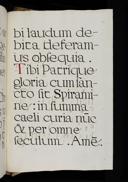 bi laudum de-
bita deferam-
us obsequia.
Tibi Patrique
gloria cum san-
cto sit Spirami-
ne: in summa
caeli curia nūc
& per omne
seculum. Amē.